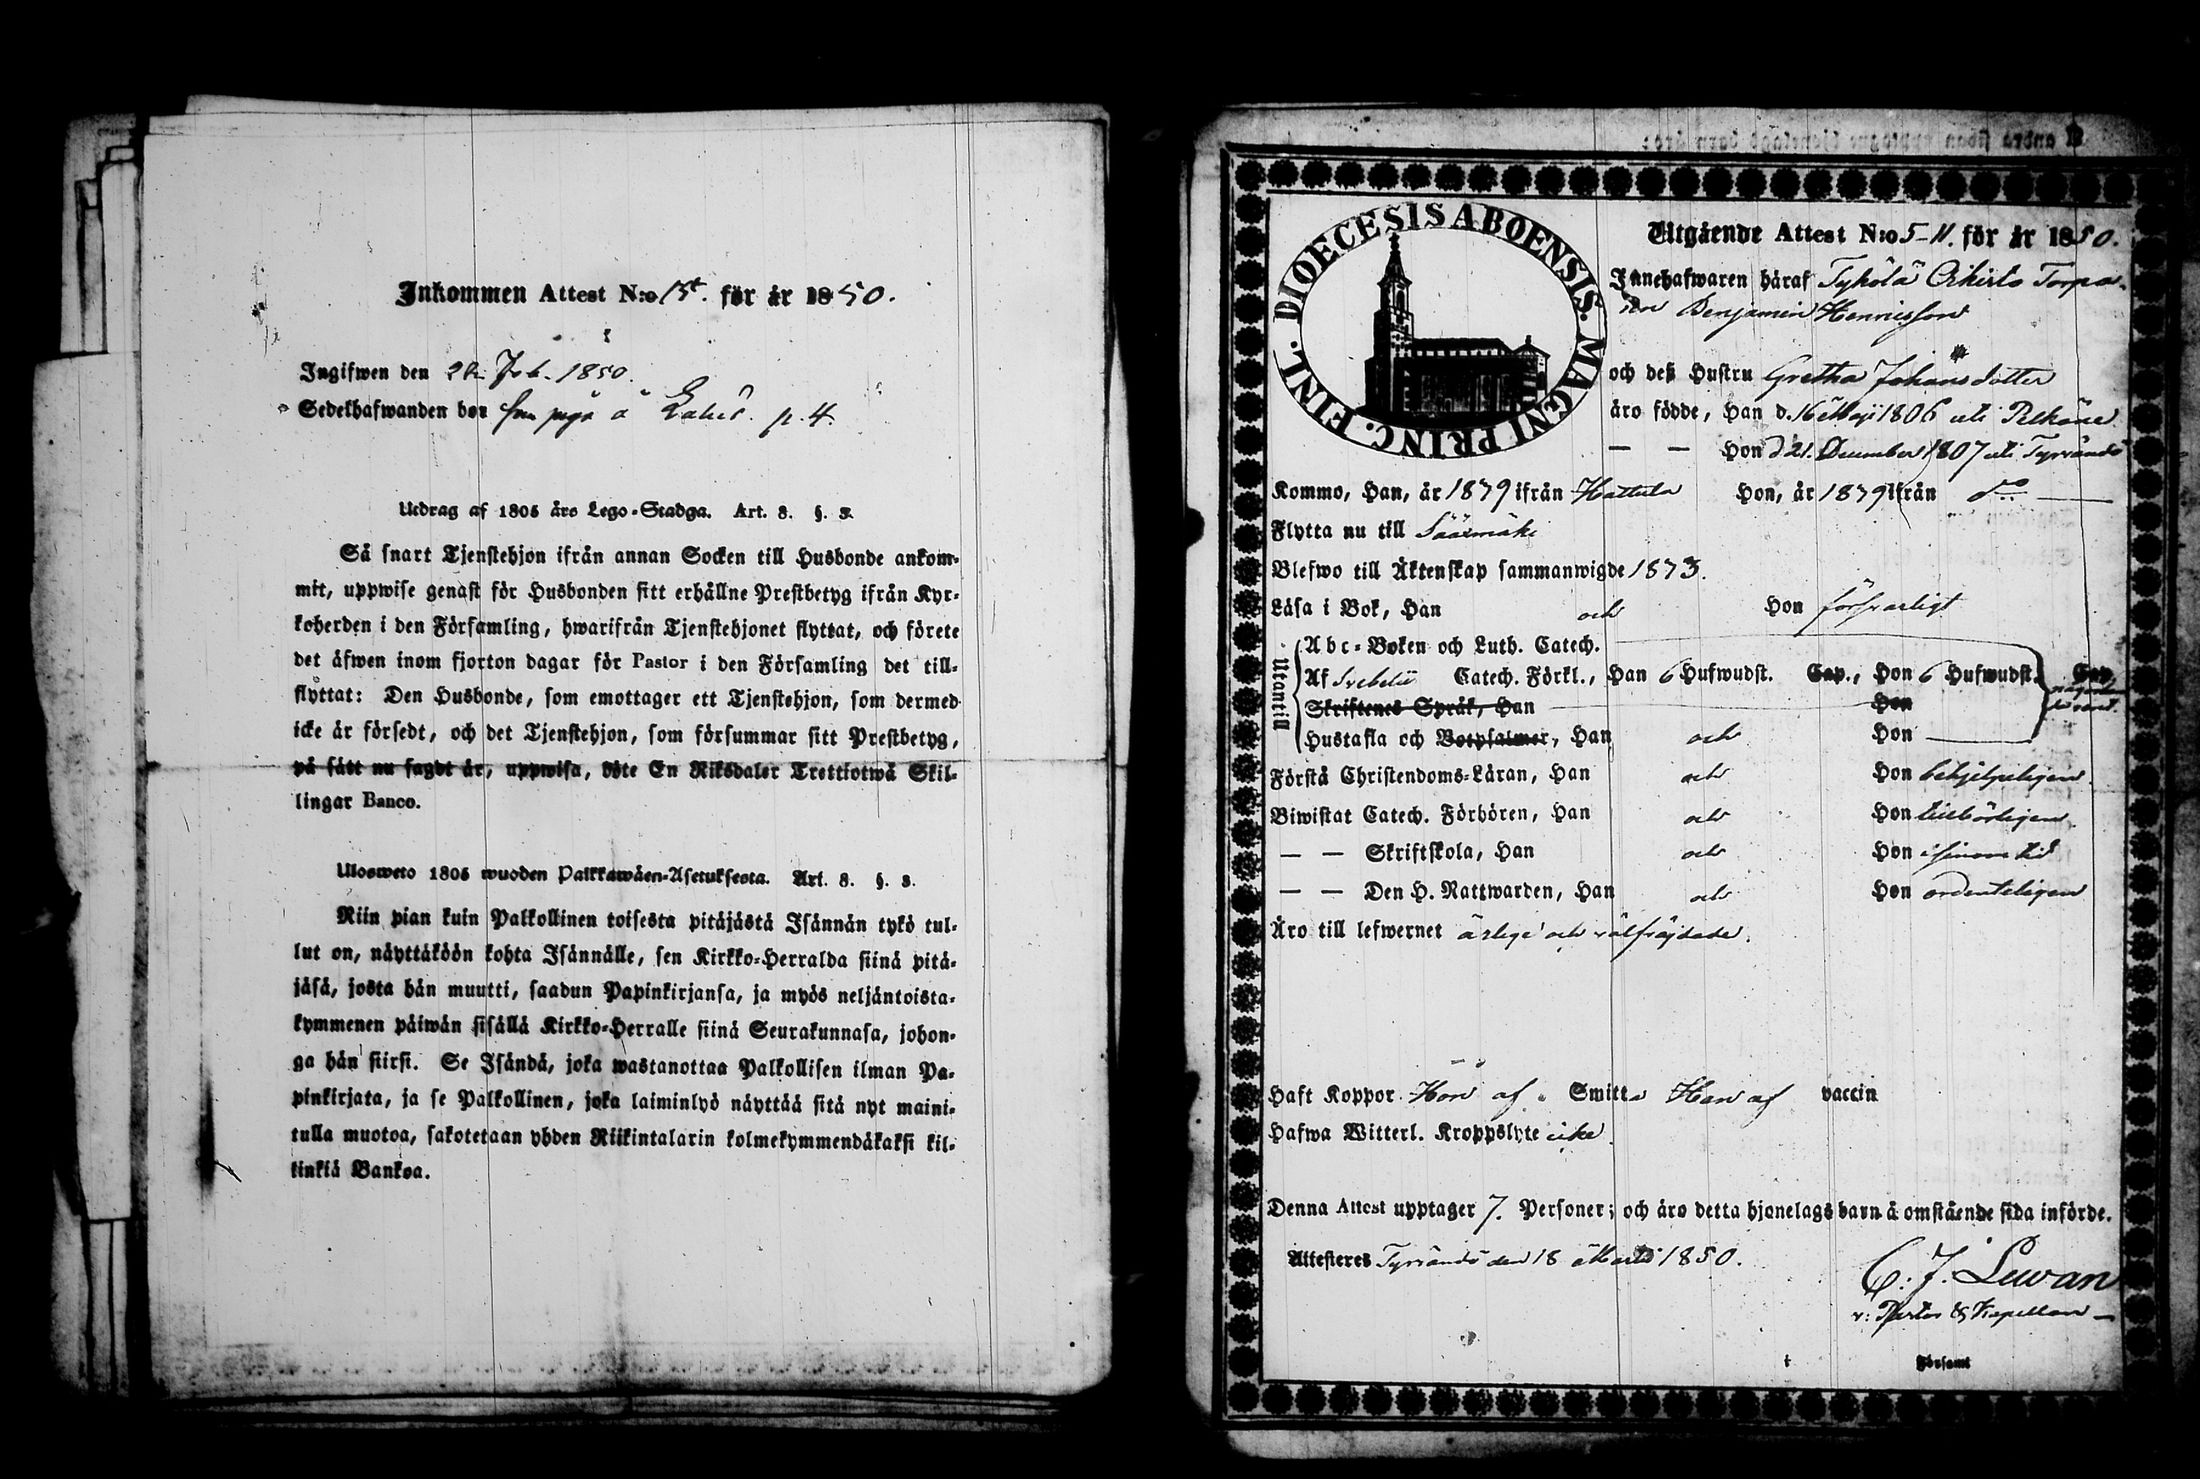 Inkommen Attest N:o för år 1850.
Ingifwen den Feb. 1850.
Sedelhafwanden bor p. 4.
Utdrag af 1805 års Lego-Stadga. Art. 8. §. 3.
Så snart Tjenstehjon ifrån annan Socken till Husbonde ankom-
mit, uppwise genast för Husbonden sitt erhållne Prestbetyg ifrån Kyr-
koherden i den Församling, hwarifrån Tjenstehjonet flyttat, och förete
det äfwen inom fjorton dagar för Pastor i den Församling det till-
flyttat: Den Husbonde, som emottager ett Tjenstehjon, som dermed
icke är försedt, och det Tjenstehjon, som försummar sitt Prestbetyg,
på sått nu sagdt är, uppwisa, böte En Riksdaler Trettiotwå Skil-
lingar Banco.
Ulosweto 1805 wuoden Palkkawäen-Asetuksesta. Art. 8. §. 3.
Niin pian kuin Palkollinen toisesta pitäjästä Isännän tykö tul-
lut on, näyttäköön kohta Isännälle, sen Kirkko-Herralda siinä pitä-
jäsä, josta hän muutti, saadun Papinkirjansa, ja myös neljäntoista-
kymmenen päiwän sisällä Kirkko-Herralle siinä Seurakunnasa, johon-
ga hän siirsi. Se Isändä, joka wastanottaa Palkollisen ilman Pa-
pinkirjata, ja se Palkollinen, joka laiminlyö näyttää sitä nyt maini-
tulla muotoa, sakotetaan yhden Riikintalarin kolmekymmendäkaksi kil-
linkiä Bankoa.
DIOECESIS ABOENSIS. MAGNI PRINC. FINL.
Utgående Attest N:o 5-11. för år 1850.
Innehafwaren häraf Torpa-
ren Benjamin Henricsson
och deß Hustru Gretha Johansdotter
äro födde, Han d. 16 Maji 1806 uti Pelkäne
— — Hon d 21. December 1807 uti Tyrvändö
Kommo, Han, år 1839 ifrån Hattula Hon, år 1839 ifrån d:o
Flytta nu till Sääxmäki
Blefwo till Äktenskap sammanwigde 1833.
Läsa i Bok, Han och Hon försvarligt
Utantill
Abc-Boken och Luth. Catech.
Af Svebelii Catech. Förkl., Han 6 Hufwudst. Cap., Hon 6 Hufwudst. Cap.
Skriftenes Språk, Han Hon
Hustafla och Botpsalmer, Han och Hon
Förstå Christendoms-Läran, Han och Hon behjelpeligen
Biwistat Catech. Förhören, Han och Hon tillbörligen
— — Skriftskola, Han och Hon i sinom tid
— — Den H. Nattwarden, Han och Hon ordenteligen
Äro till lefwernet ärlige och välfrejdade.
Haft Koppor Hon af Smitta Han af vaccin
Hafwa Witterl. Kroppslyte icke
Denna Attest upptager 7. Personer; och äro detta hjonelags barn å omstående sida införde.
Attesteres Tyrvändö den 18 Martii 1850.
C: J. Lewan
v: Pastor & Kapellan
i Församl